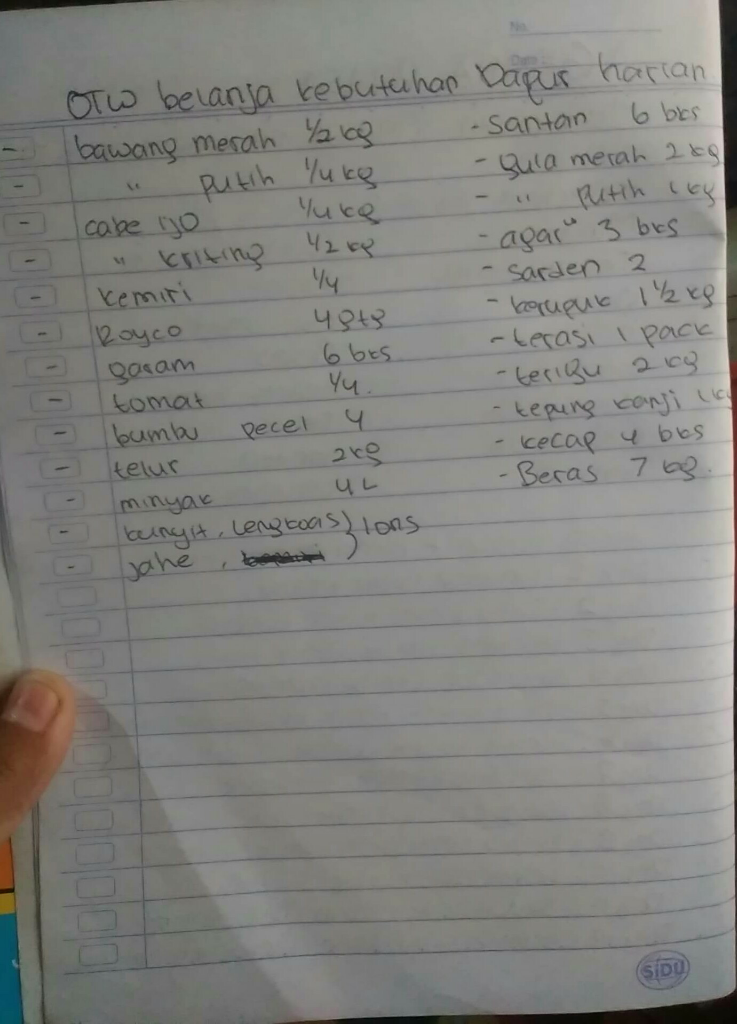 No.
Date
OTW belanja kebutuhan Dapur harian
- bawang merah 1/2 kg
- " putih 1/4 kg
- cabe ijo 1/4 kg
- " kriting 1/2 kg
- kemiri 1/4
- Royco 4 gtg
- garam 6 bks
- tomat 1/4.
- bumbu pecel 4
- telur 2 kg
- minyak 4 L
- kunyit, lengkoas) 1 ons
- jahe, )
- santan 6 bks
- gula merah 2 kg
- " putih 1 kg
- agar" 3 bks
- sarden 2
- kerupuk 1 1/2 kg
- terasi 1 pack
- terigu 2 kg
- tepung kanji 1 kg
- kecap 4 bks
- Beras 7 kg.
SIDU